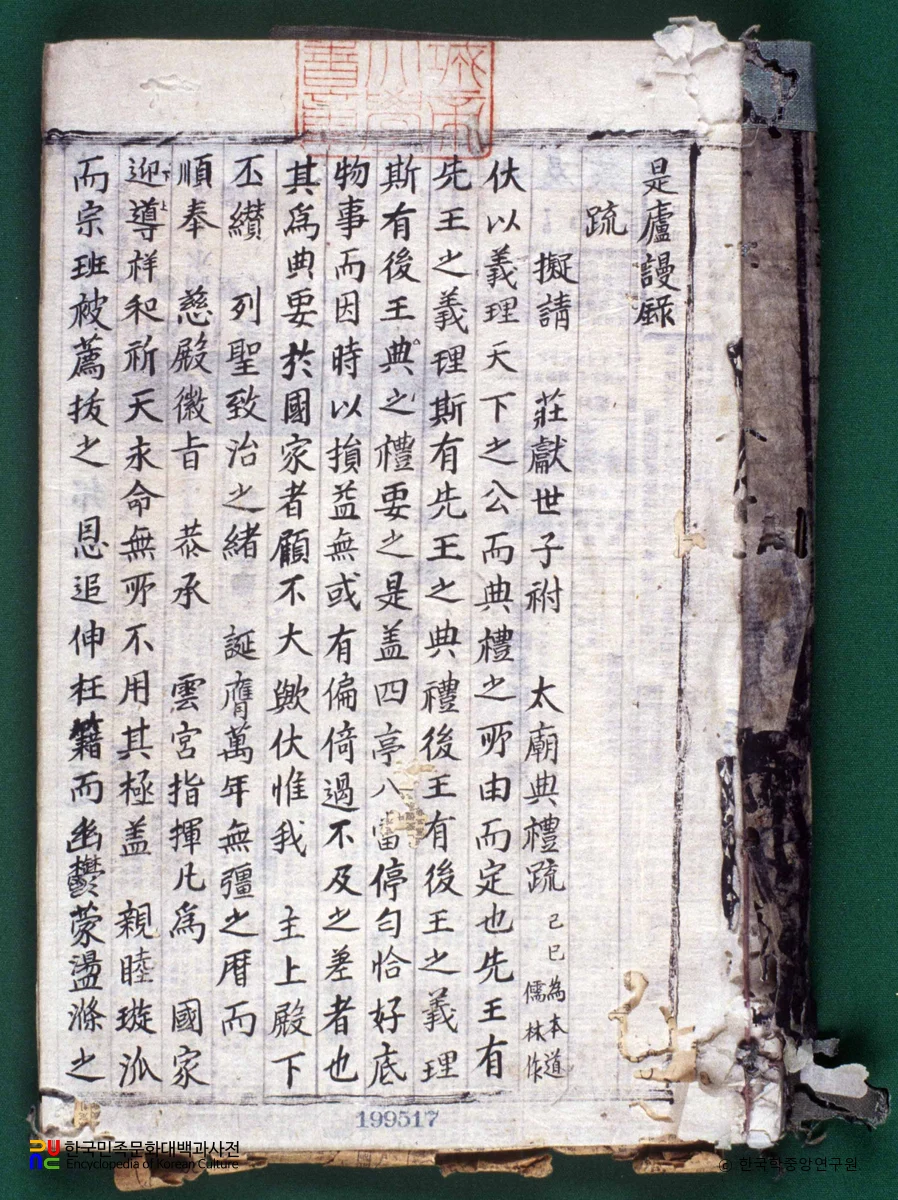 是廬謾錄
疏
擬請 莊獻世子祔 太廟典禮疏 己巳為本道儒林作
伏以義理天下之公而典禮之所由而定也先王有
先王之義理斯有先王之典禮後王有後王之義理
斯有後王典之禮要之是盖四亭八當停勻恰好底
物事而因時以損益無或有偏倚過不及之差者也
其爲典要於國家者顧不大歟伏惟我 主上殿下
丕纘 列聖致治之緖 誕膺萬年無彊之曆而
順奉 慈殿徽旨 恭承 雲宮指揮凡爲 國家
迎導祥和祈天永命無所不用其極盖 親睦璇派
而宗班被薦拔之 恩追伸枉籍而幽鬱蒙盪滌之
199517
한국민족문화대백과사전
Encyclopedia of Korean Culture
© 한국학중앙연구원